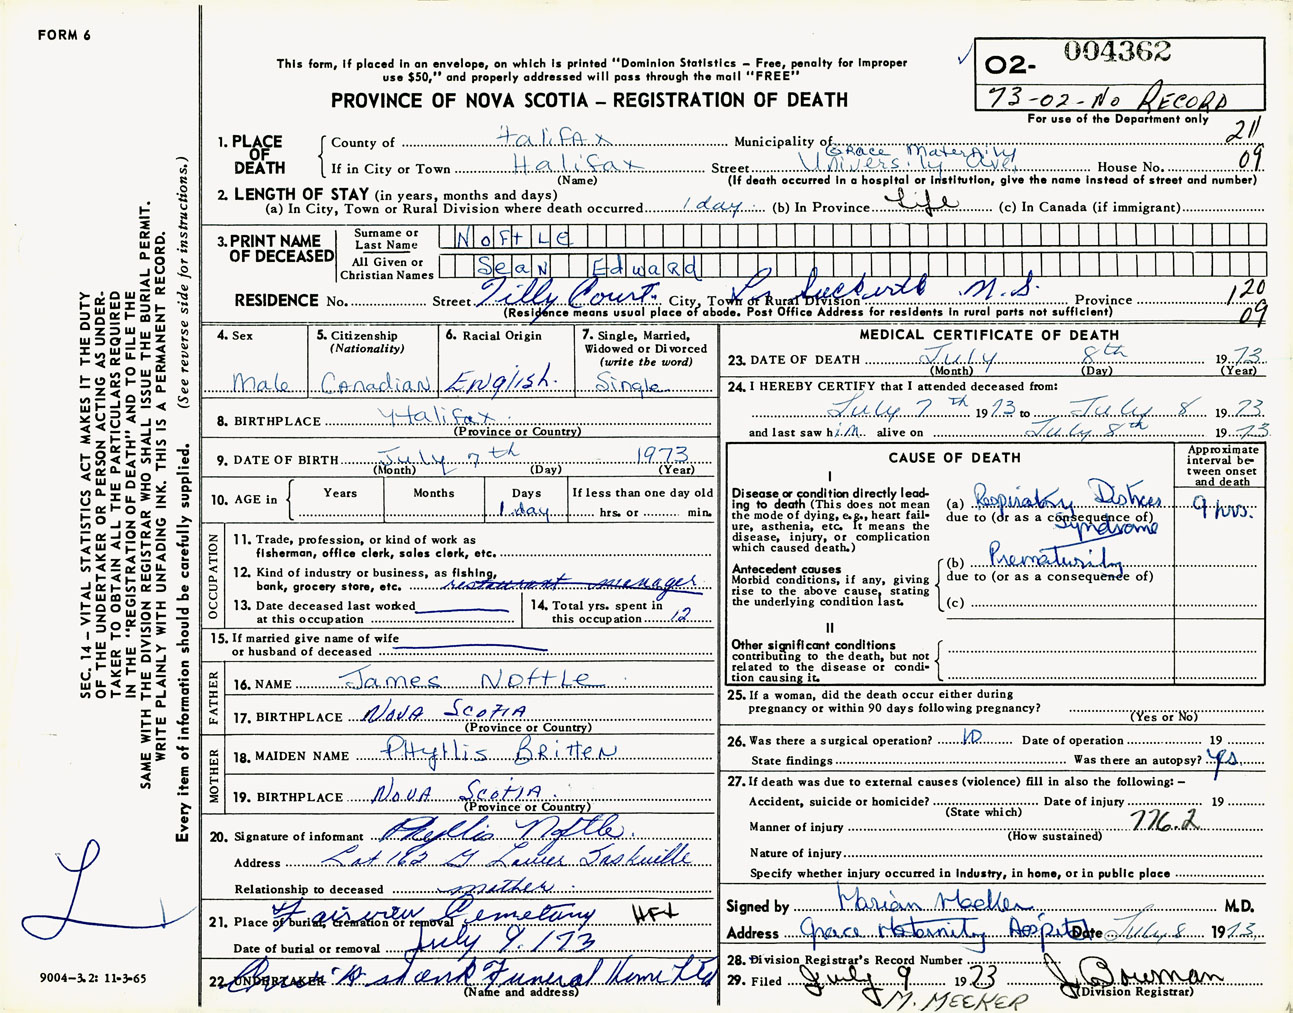 FORM 6
This form, if placed in an envelope, on which is printed "Dominion Statistics – Free, penalty for improper
use $50," and properly addressed will pass through the mail "FREE"
PROVINCE OF NOVA SCOTIA – REGISTRATION OF DEATH
02- 004362
73-02-No RECORD
For use of the Department only
211
09
1. PLACE OF DEATH
County of Halifax Municipality of
Grace Maternity
If in City or Town Halifax Street University Ave. House No.
(Name) (If death occurred in a hospital or institution, give the name instead of street and number)
2. LENGTH OF STAY (in years, months and days)
(a) In City, Town or Rural Division where death occurred 1 day (b) In Province Life (c) In Canada (if immigrant)
3. PRINT NAME OF DECEASED
Surname or Last Name Noftle
All Given or Christian Names Sean Edward
RESIDENCE No. Street Tilly Court. City, Town or Rural Division N.S. Province 120
(Residence means usual place of abode. Post Office Address for residents in rural parts not sufficient) 09
4. Sex Male
5. Citizenship (Nationality) Canadian
6. Racial Origin English.
7. Single, Married, Widowed or Divorced (write the word) Single
8. BIRTHPLACE Halifax.
(Province or Country)
9. DATE OF BIRTH July 7th 1973
(Month) (Day) (Year)
10. AGE in Years Months Days If less than one day old
1 day hrs. or min.
OCCUPATION
11. Trade, profession, or kind of work as
fisherman, office clerk, sales clerk, etc.
12. Kind of industry or business, as fishing,
bank, grocery store, etc. restaurant manager
13. Date deceased last worked
at this occupation
14. Total yrs. spent in
this occupation 12
15. If married give name of wife
or husband of deceased
FATHER
16. NAME James Noftle
17. BIRTHPLACE Nova Scotia
(Province or Country)
MOTHER
18. MAIDEN NAME Phyllis Britten
19. BIRTHPLACE Nova Scotia.
(Province or Country)
20. Signature of informant Phyllis Noftle.
Address Lot 162 Lower Sackville
Relationship to deceased mother.
21. Place of burial, cremation or removal Fairview Cemetery HFX
Date of burial or removal July 9. 173
22. UNDERTAKER Funeral Home Ltd
(Name and address)
MEDICAL CERTIFICATE OF DEATH
23. DATE OF DEATH July 8th 1973
(Month) (Day) (Year)
24. I HEREBY CERTIFY that I attended deceased from:
July 7th 1973 to July 8 1973
and last saw him alive on July 8th 1973
CAUSE OF DEATH
Approximate interval between onset and death
I
Disease or condition directly lead-
ing to death (This does not mean
the mode of dying, e.g., heart fail-
ure, asthenia, etc. It means the
disease, injury, or complication
which caused death.)
(a) Respiratory Distress 9 hrs.
due to (or as a consequence of)
Syndrome
Antecedent causes
Morbid conditions, if any, giving
rise to the above cause, stating
the underlying condition last.
(b) Prematurity
due to (or as a consequence of)
(c)
II
Other significant conditions
contributing to the death, but not
related to the disease or condi-
tion causing it.
25. If a woman, did the death occur either during
pregnancy or within 90 days following pregnancy?
(Yes or No)
26. Was there a surgical operation? no Date of operation 19
State findings Was there an autopsy? yes
27. If death was due to external causes (violence) fill in also the following: –
Accident, suicide or homicide? Date of injury 19
(State which)
Manner of injury 776.2
(How sustained)
Nature of injury
Specify whether injury occurred in industry, in home, or in public place
Signed by Marian Meeker M.D.
Address Grace Maternity Hospital Date July 8 1973
28. Division Registrar's Record Number
29. Filed July 9 1973 J Bowman
(Division Registrar)
M. MEEKER
SEC. 14 – VITAL STATISTICS ACT MAKES IT THE DUTY
OF THE UNDERTAKER OR PERSON ACTING AS UNDER-
TAKER TO OBTAIN ALL THE PARTICULARS REQUIRED
IN THE "REGISTRATION OF DEATH" AND TO FILE THE
SAME WITH THE DIVISION REGISTRAR WHO SHALL ISSUE THE BURIAL PERMIT.
WRITE PLAINLY WITH UNFADING INK. THIS IS A PERMANENT RECORD.
Every item of information should be carefully supplied. (See reverse side for instructions.)
9004-3.2: 11-3-65